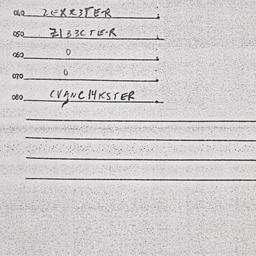 040 ZEXX3TER
050 Z1B3CTER
060 0
070 0
080 CVANC14KSTER